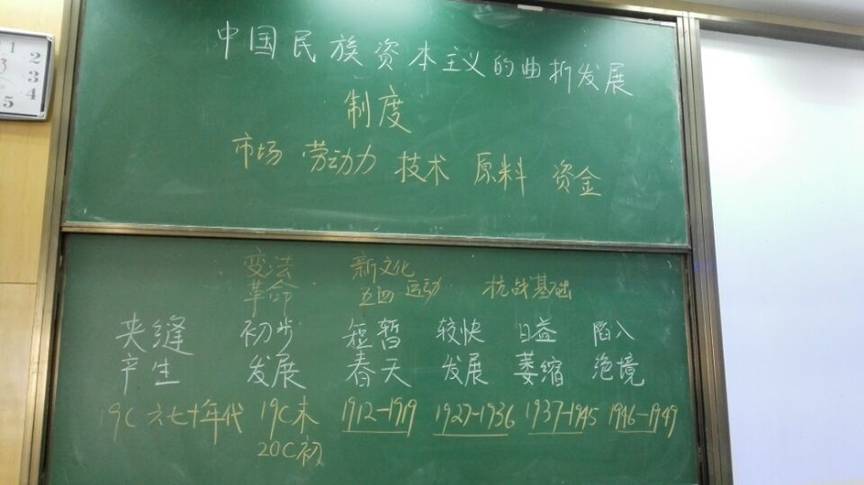 1
2
3
3
4
5
中国民族资本主义的曲折发展
制度
市场 劳动力 技术 原料 资金
变法 新文化
革命 五四运动 抗战基础
夹缝 初步 短暂 较快 日益 陷入
产生 发展 春天 发展 萎缩 绝境
19C 六七十年代 19C末 1912-1919 1927-1936 1937-1945 1946-1949
20C初